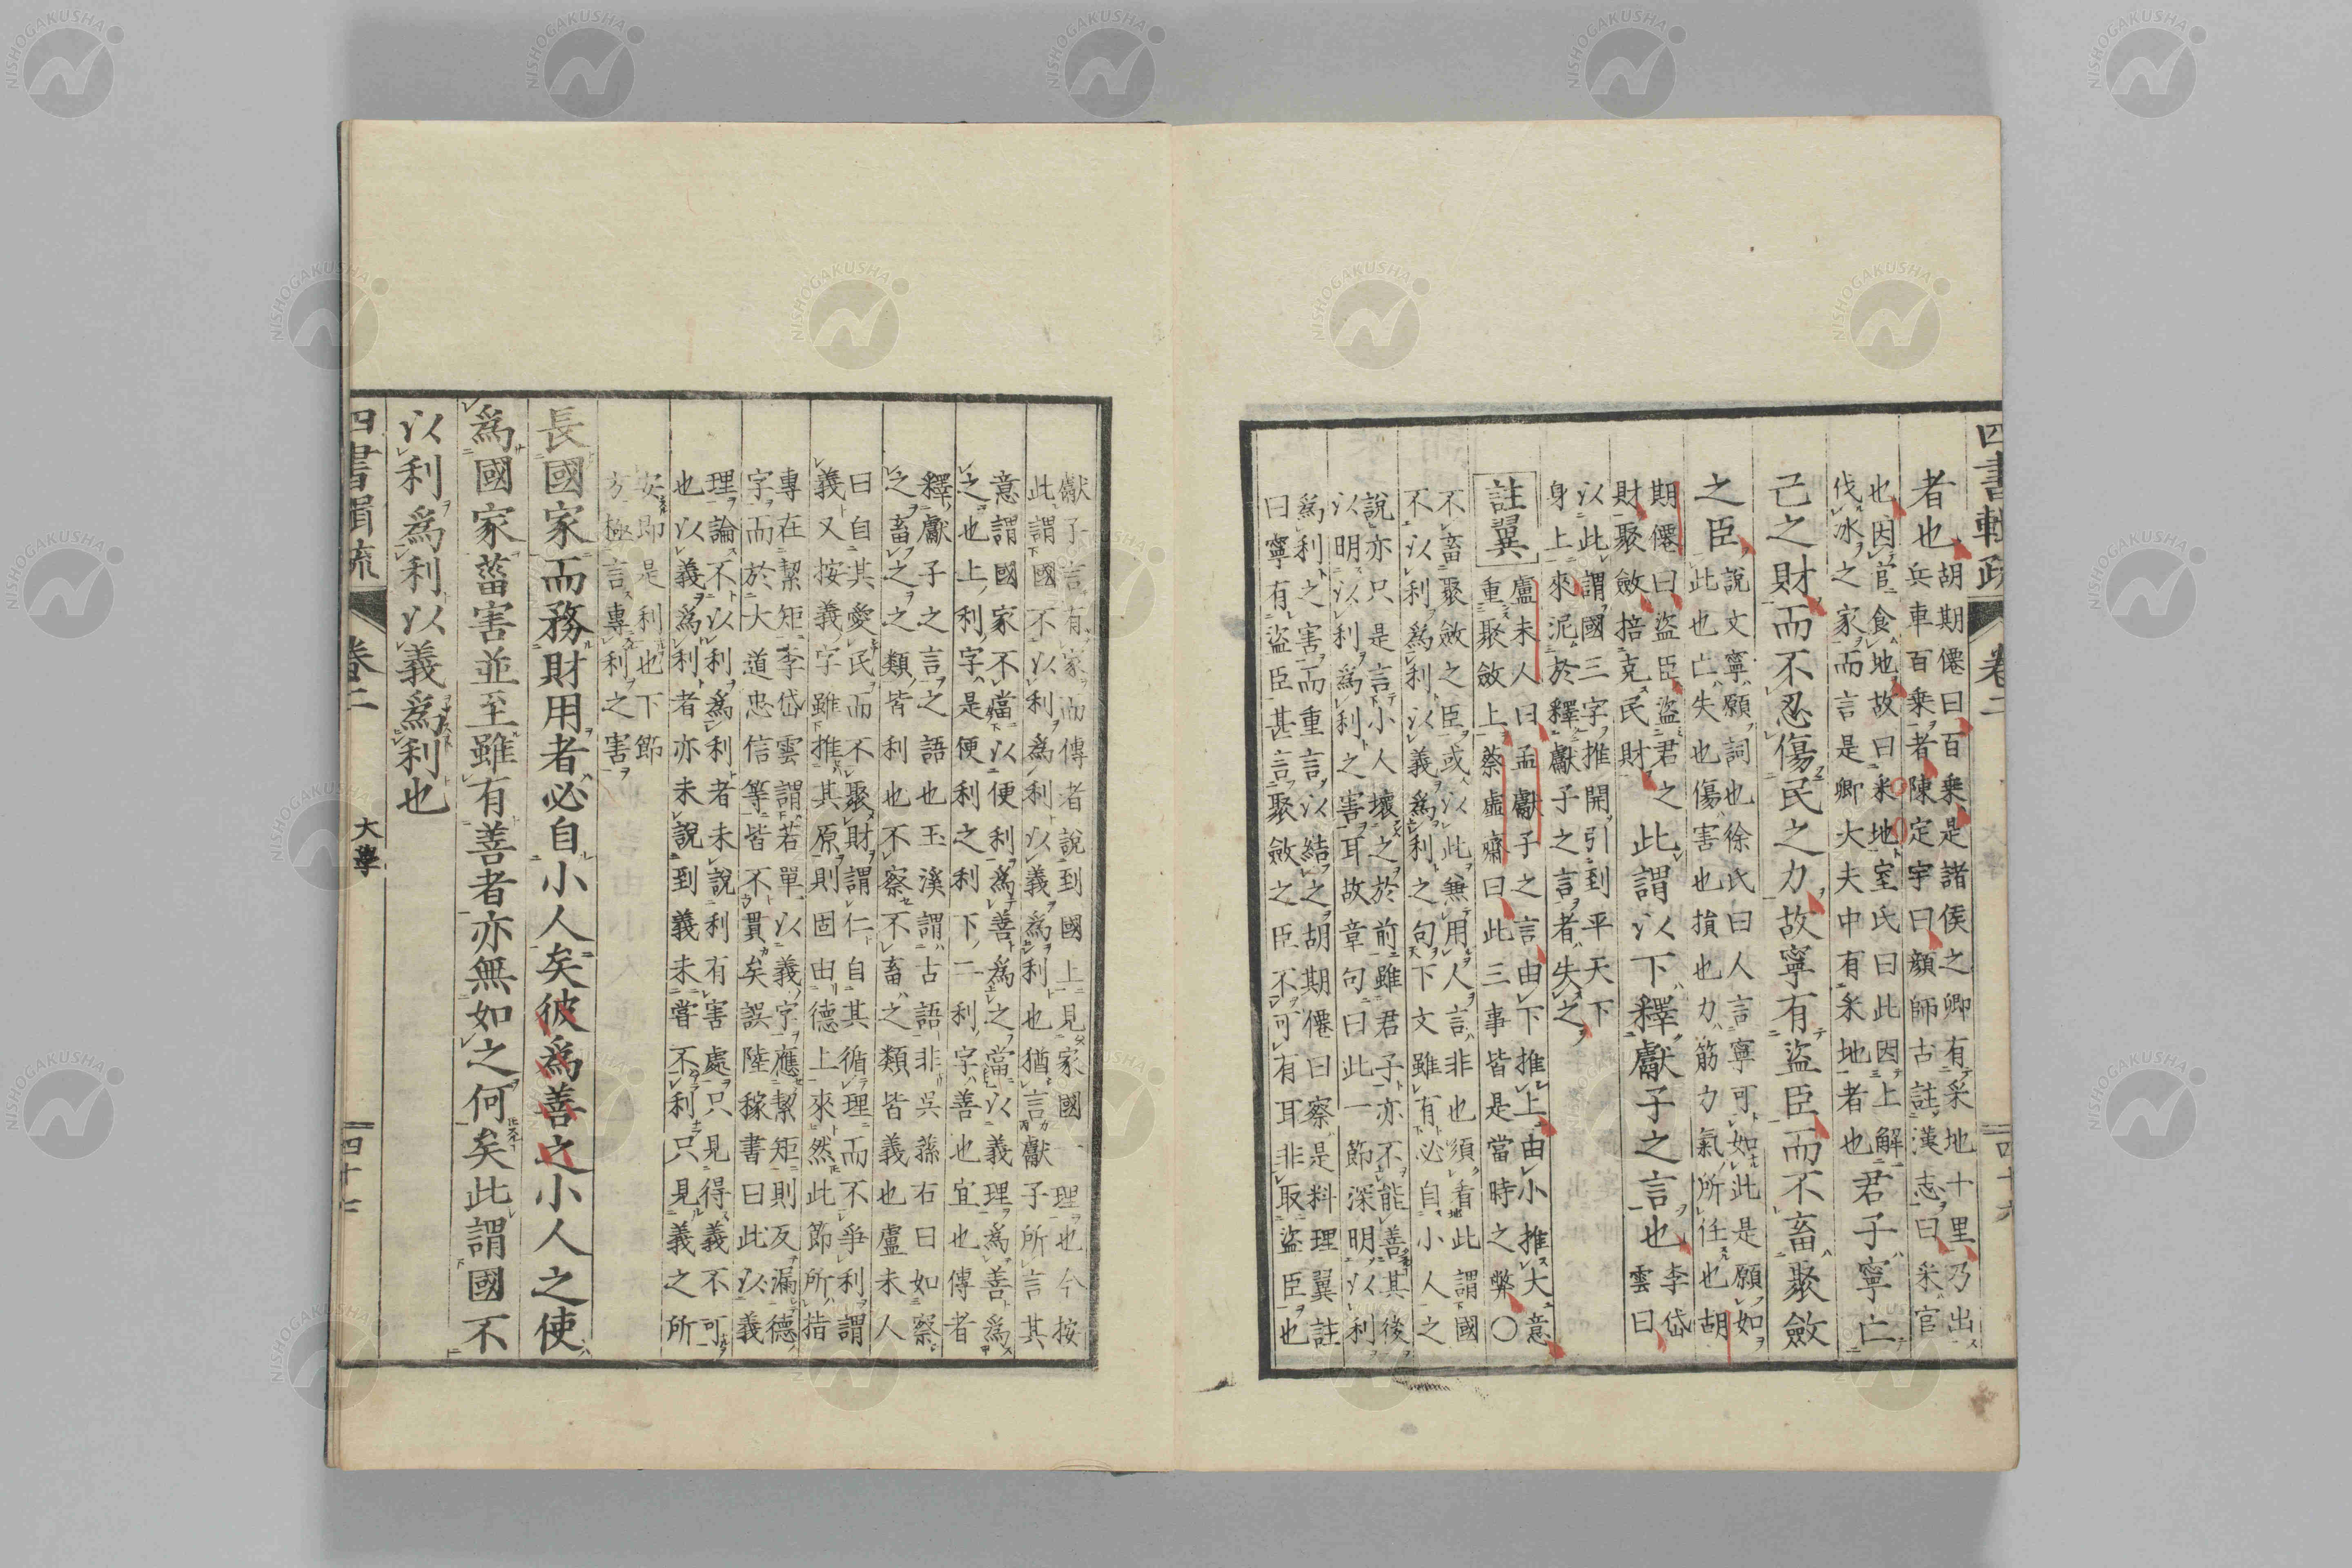 四書輯疏 卷二
者也
胡期僊曰百乗是諸侯之卿有采地十里乃出
兵車百乗者陳定宇曰顏師古註漢志曰采官
也因官食地故曰采地室氏曰此因上解
伐冰之家而言是卿大夫中有采地者也
君子寧亡
己之財而不忍傷民之力故寧有盜臣而不畜聚斂
之臣
說文寧願詞也徐氏曰人言寧可如此是願如
此也亡失也傷害也損也力筋力氣所任也胡
期僊曰盜臣盜君之
財聚斂掊克民財
此謂以下釋獻子之言也
李岱
雲曰
以此謂國三字推開引到平天下
身上來泥於釋獻子之言者失之
註翼
盧未人曰孟獻子之言由下推上由小推大意
重聚斂上蔡虛齋曰此三事皆是當時之弊〇
不畜聚斂之臣或以此無用人言非也須看此謂國
不以利爲利以義爲利之句下文雖有必自小人之
說亦只是言小人壞之於前雖君子亦不能善其後
以明以利爲利之害耳故章句曰此一節深明以利
爲利之害而重言以結之胡期僊曰察是料理翼註
曰寧有盜臣甚言聚斂之臣不可有耳非取盜臣也
獻子言有家而傳者說到國上見家國一理也今按
此謂國不以利爲利以義爲利也猶言獻子所言其
意謂國家不當以便利爲善爲之當以義理爲善爲
之也上利字是便利之利下二利字善也宜也傳者
釋獻子之言之語也玉溪謂古語非吳蓀右曰如察
之畜之之類皆利也不察不畜之類皆義也盧未人
曰自其愛民而不聚財謂仁自其循理而不爭利謂
義又按義字雖推其原則固由德上來然此節所指
專在絜矩李岱雲謂若單以義字應絜矩則反漏德
字而於大道忠信等皆不貫矣誤陸稼書曰此以義
理論不以利爲利者未說利有害處只見得義不可
也以義爲利者亦未說到義未嘗不利只見義之所
安即是利也下節
方極言專利之害
長國家而務財用者必自小人矣彼爲善之小人之使
爲國家菑害並至雖有善者亦無如之何矣此謂國不
以利爲利以義爲利也
四書輯疏 卷二 大學 四十七
NISHOGAKUSHA